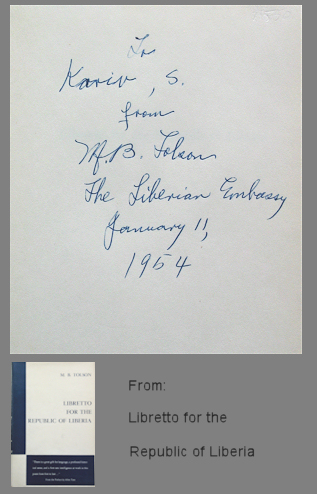 To
Kariv, S.
from
M.B. Tolson
The Liberian Embassy
January 11,
1954
M. B. TOLSON
LIBRETTO
FOR THE
REPUBLIC OF LIBERIA
From:
Libretto for the
Republic of Liberia